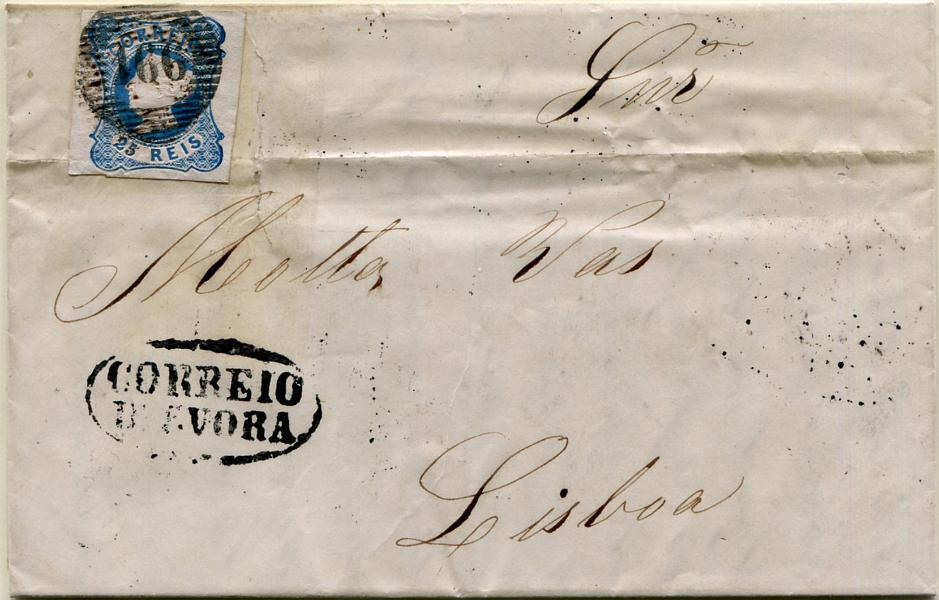 CORREIO
166
25 REIS
Snr
Motta Vas
CORREIO
D'EVORA
Lisboa